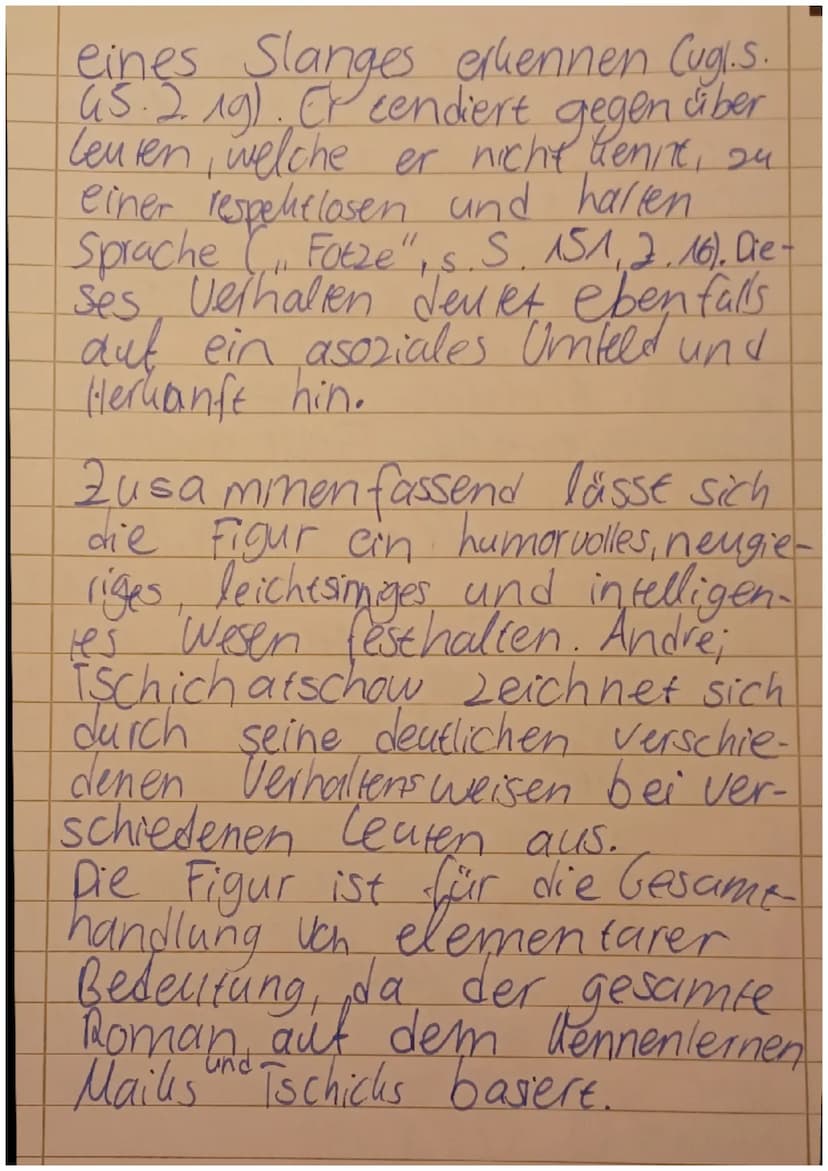 eines Slanges erkennen (vgl. S.
45. Z. 19). Er tendiert gegenüber
Leuten, welche er nicht kennt, zu
einer respektlosen und harten
Sprache („Fotze", s. S. 151, Z. 16). Die-
ses Verhalten deutet ebenfalls
auf ein asoziales Umfeld und
Herkunft hin.
Zusammenfassend lässt sich
die Figur ein humorvolles, neugie-
riges, leichtsinniges und intelligen-
tes Wesen festhalten. Andrej
Tschichatschow zeichnet sich
durch seine deutlichen verschie-
denen Verhaltensweisen bei ver-
schiedenen Leuten aus.
Die Figur ist für die Gesamt-
handlung von elementarer
Bedeutung, da der gesamte
Roman auf dem Kennenlernen
Maiks und Tschicks basiert.